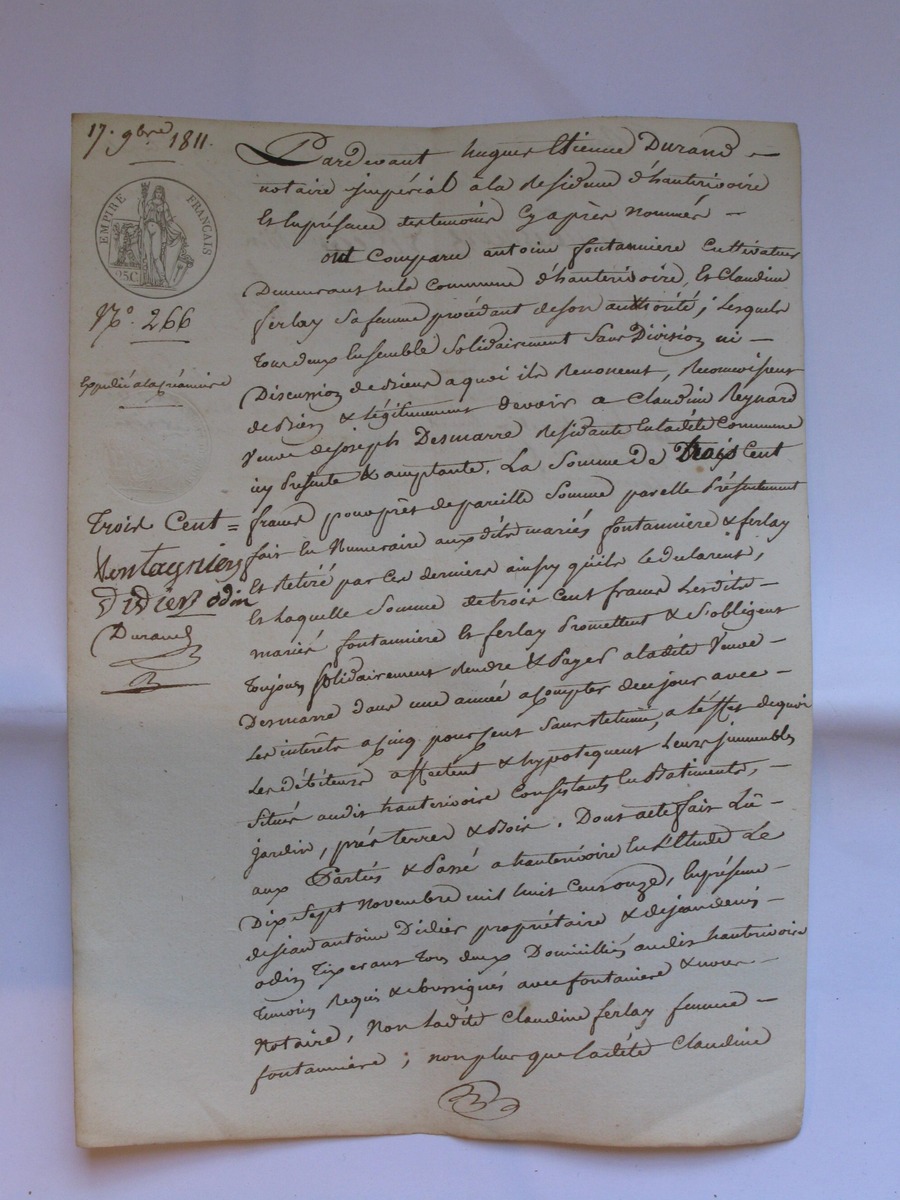 17. 9bre 1811.
EMPIRE FRANÇAIS
25C
N° 266
Expédié à la créancière
Trois Cent =
fontagnier
Didier odin
Durand
Pardevant hugues Etienne Durand -
notaire impérial à la Residence d'hauterivoire
Et En présence des temoins Cy après nommés -
ont Comparu antoine fontanniere Cultivateur
Demeurant en la commune d'hauterivoire, Et Claudine
ferlay sa femme procédant de son authorité; Lesquels
tous deux Ensemble Solidairement Sans Division ni -
Discussion de Biens a quoi ils Renoncent, Reconnoissent
de Bien & légitimement devoir a Claudine Reynard
Veuve de joseph Desmarre Residante En ladite Commune
icy Présente & acceptante. La Somme de Trois Cent
francs pour prêt de pareille Somme par elle Présentement
fait En Numeraire aux dits mariés fontanniere & ferlay
Et Retiré par Ces derniers ainsy qu'ils le déclarent,
Et Laquelle Somme de trois Cent francs Lesdits -
mariés fontanniere Et ferlay Promettent & S'obligent
toujours Solidairement Rendre & Payer a ladite Veuve -
Desmarre dans une année a Compter de ce jour avec -
Les interêts a cinq pour Cent Sans Retenüe, a l'effet de quoi
Les débiteurs affectent & hypotequent Leurs immeubles
Situés audit hauterivoire Consistants En Batiments, -
jardin, prés terres & Bois. Dont acte fait Lû -
aux Parties & Passé a hauterivoire En l'Etude Le
Dix Sept Novembre mil huit Cent onze, En présence -
de jean antoine Didier propriétaire & de jean denis -
odin Tixerant tous deux Domiciliés audit hauterivoire
temoins Requis & Soussignés avec fontaniere & nous -
Notaire, Non ladite Claudine ferlay femme -
fontanniere; non plus que ladite Claudine